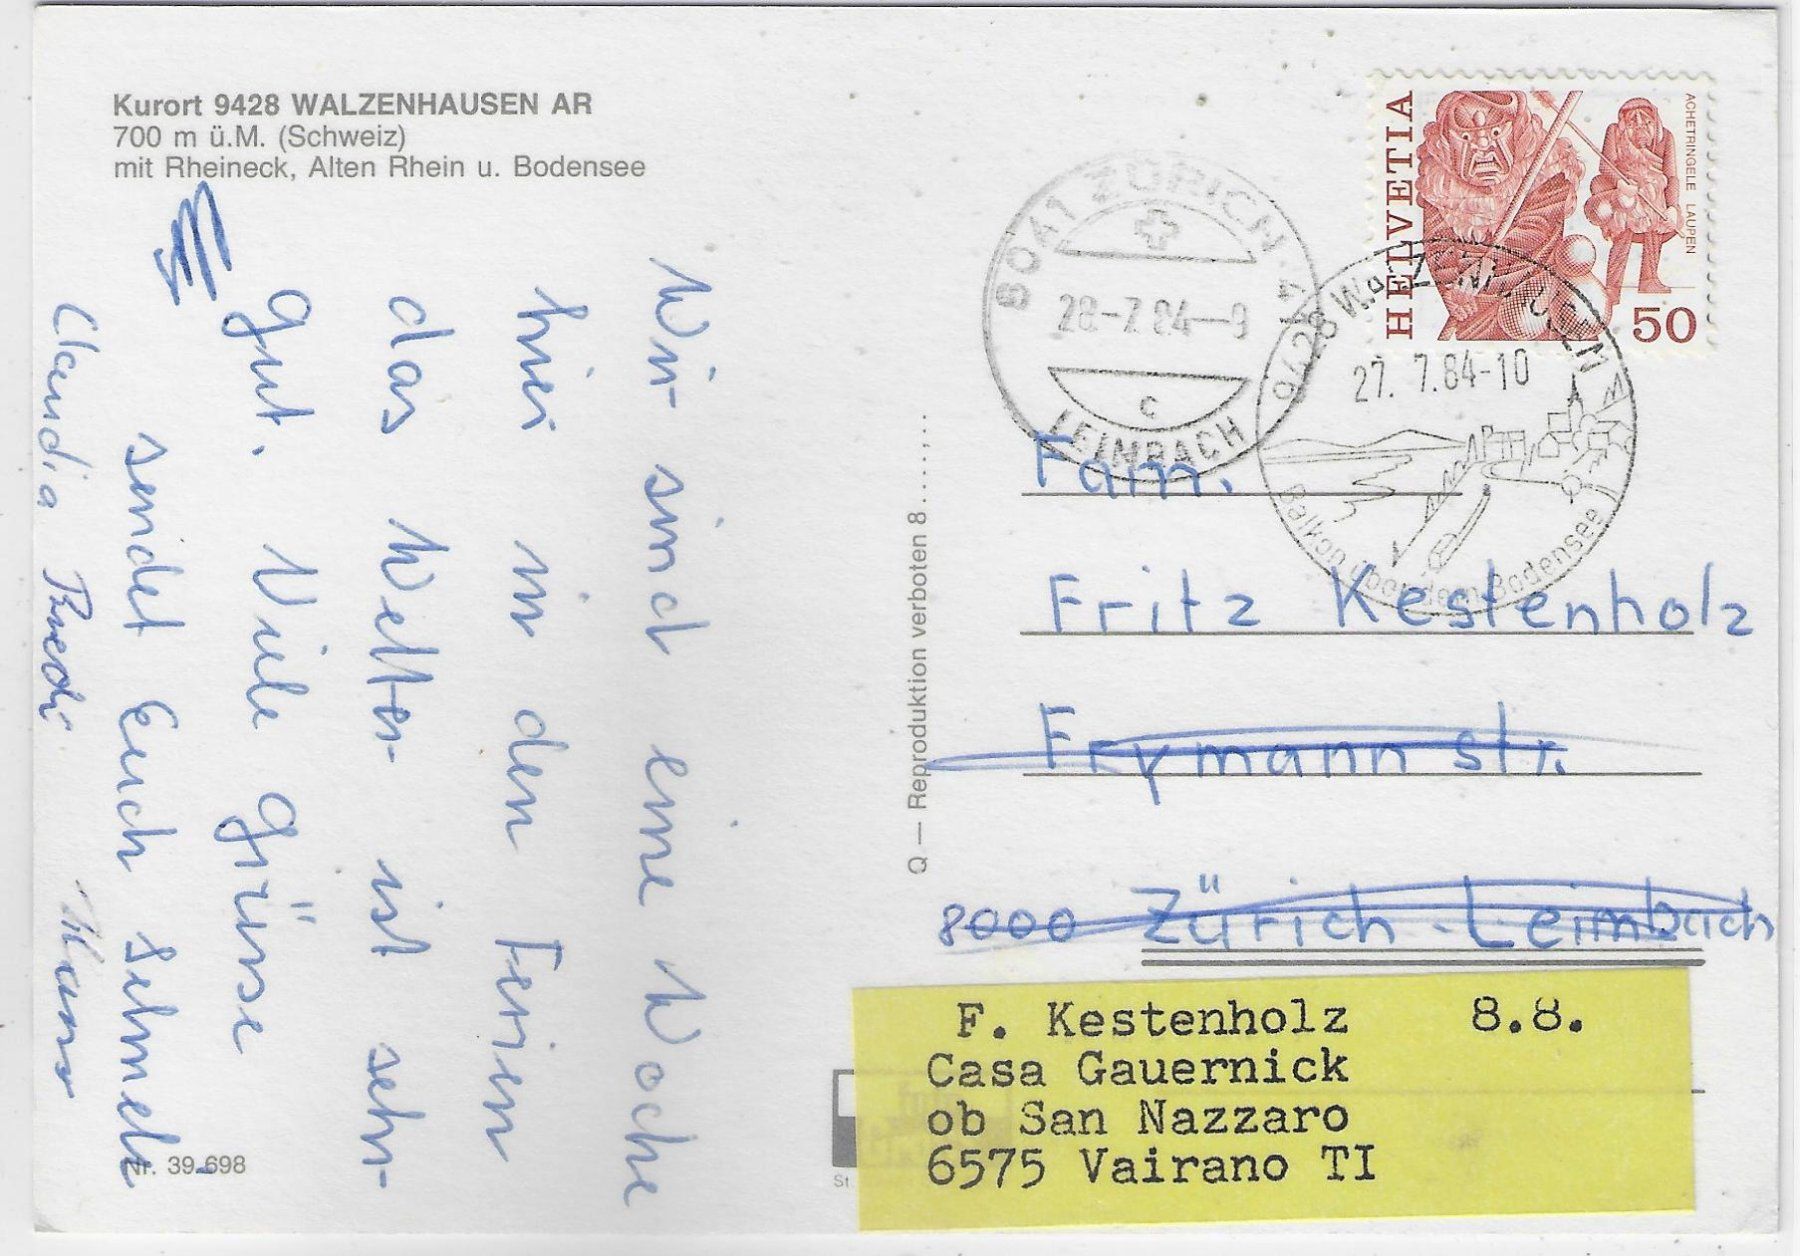 Kurort 9428 WALZENHAUSEN AR
700 m ü.M. (Schweiz)
mit Rheineck, Alten Rhein u. Bodensee
Wir sind eine Woche
hier in den Ferien
das Wetter ist sehr
gut. Viele Grüsse
sendet Euch
Claudia Hans
Nr. 39-698
Q — Reproduktion verboten 8......,...
HELVETIA
ACHETRINGELE LAUPEN
50
8041 ZÜRICH · 41
28-7 84-9
C
LEIMBACH
9428 WALZENHAUSEN
27. 7.84-10
Balkon über dem Bodensee
Fam.
Fritz Kestenholz
Frymann str.
8000 Zürich-Leimbach
F. Kestenholz 8.8.
Casa Gauernick
ob San Nazzaro
6575 Vairano TI
St.